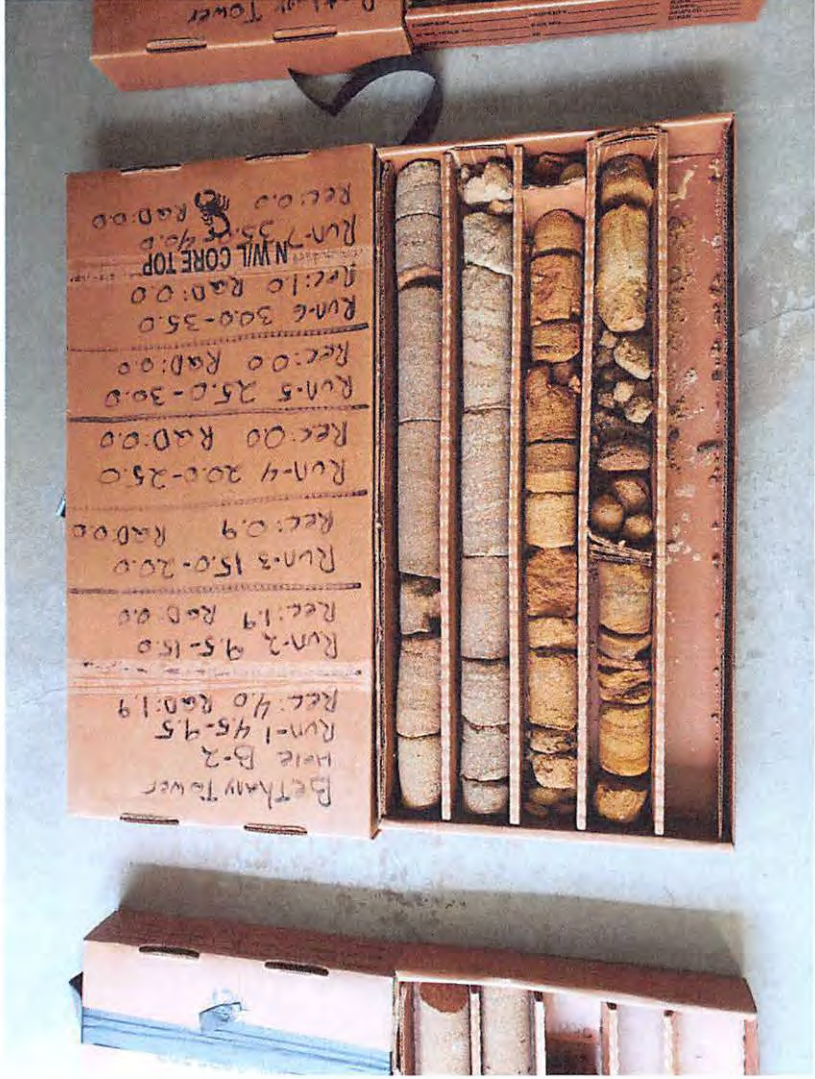 BETHany Tower
Hole B-2
Run-1 4.5-9.5
Rec: 4.0 RQD: 1.9
Run-2 9.5-15.0
Rec: 1.9 RQD: 0.0
Run-3 15.0-20.0
Rec: 0.9 RQD 0.0
Run-4 20.0-25.0
Rec: 0.0 RQD: 0.0
Run-5 25.0-30.0
Rec: 0.0 RQD: 0.0
Run-6 30.0-35.0
Rec: 1.0 RQD 0.0
N W/L CORE TOP
Run-7 35.0-40.0
Rec: 0.0 RQD: 0.0
Tower